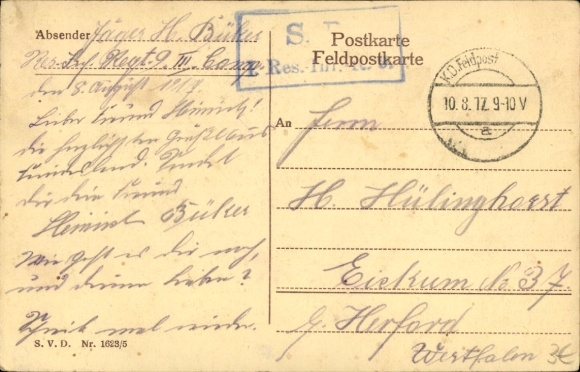 Absender Jäger H. Büker
Res. Inf. Regt. 9. III. Comp.
den 8. August 1917.
Lieber Freund Heinrich!
die herzlichsten Grüße aus
Feindesland. Sendet
dir dein Freund
Heinrich Büker
Wie geht es dir noch,
und deinen Lieben?
Schreib mal wieder.
S. V. D. Nr. 1623/5
S. B.
Res.-Inf.
Postkarte
Feldpostkarte
K.D. Feldpost
10. 8. 17. 9-10 V
a
An Herrn
H. Hülinghorst
Eickum No 37.
b. Herford
Westfalen
3€